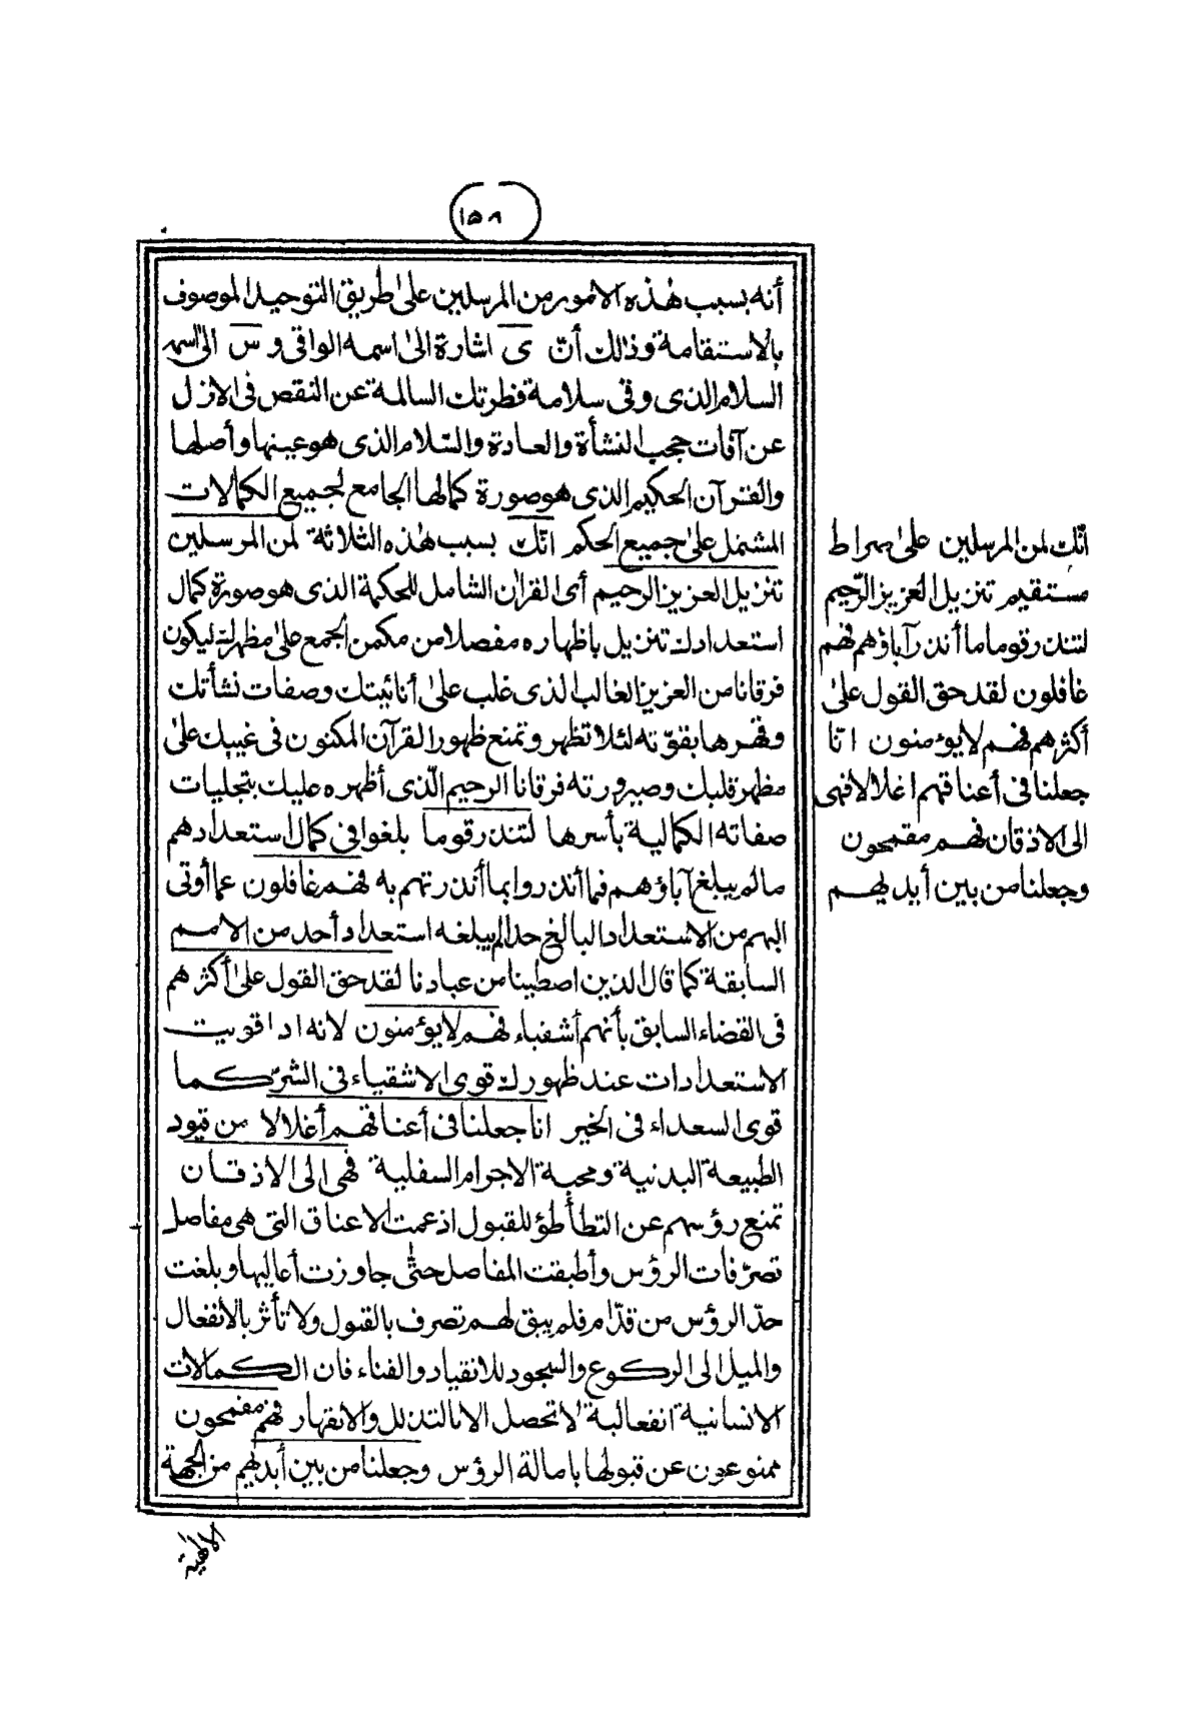 ١٥٨
أنه بسبب هٰذه الامور من المرسلين علىٰ طريق التوحيد الموصوف
بالاستقامة وذلك أنّ ى اشارة الىٰ اسمه الواقى و س الىٰ اسمه
السلام الذى وقى سلامة فطرتك السالمة عن النقص فى الازل
عن آفات حجب النشأة والعادة والسّلام الذى هو عينها وأصلها
والقرآن الحكيم الذى هو صورة كمالها الجامع لجميع الكمالات
المشتمل علىٰ جميع الحكم انّك بسبب هٰذه الثلاثة لمن المرسلين
تنزيل العزيز الرحيم أى القراٰن الشامل للحكمة الذى هو صورة كمال
استعدادك تنزيل باظهاره مفصلا من مكمن الجمع علىٰ مظهرك ليكون
فرقانا من العزيز الغالب الذى غلب علىٰ أنائيتك وصفات نشأتك
وقهرها بقوّته لئلا تظهر وتمنع ظهور القرآن المكنون فى غيبك علىٰ
مظهر قلبك وصيرورته فرقانا الرحيم الّذى أظهره عليك بتجليات
صفاته الكمالية بأسرها لتنذر قوما بلغوا فى كمال استعدادهم
ما لم يبلغ آباؤهم فما أنذروا بما أنذرتهم به فهم غافلون عما أوتى
اليهم من الاستعداد البالغ حدا لم يبلغه استعداد أحد من الامم
السابقة كما قال الذين اصطفينا من عبادنا لقد حق القول علىٰ أكثرهم
فى القضاء السابق بأنهم أشقياء فهم لا يؤمنون لانه اذا قويت
الاستعدادات عند ظهورك قوى الاشقياء فى الشرّ كما
قوى السعداء فى الخير انا جعلنا فى أعناقهم أغلالا من قيود
الطبيعة البدنية ومحبة الاجرام السفلية فهى الى الاذقان
تمنع رؤسهم عن التطأطؤ للقبول اذ عمت الاعناق التى هى مفاصل
تصرّفات الرؤس وأطبقت المفاصل حتّٰى جاوزت أعاليها وبلغت
حدّ الرؤس من قدّام فلم يبق لهم تصرف بالقبول ولا تأثر بالانفعال
والميل الى الركوع والسجود للانقياد والفناء فان الكمالات
الانسانية انفعالية لا تحصل الا بالتذلل والانقهار فهم مقمحون
ممنوعون عن قبولها بامالة الرؤس وجعلنا من بين أيديهم من الجهة
الالٰهية
انّك لمن المرسلين علىٰ صراط
مستقيم تنزيل العزيز الرّحيم
لتنذر قوما ما أنذر آباؤهم فهم
غافلون لقد حق القول علىٰ
أكثرهم فهم لا يؤمنون انا
جعلنا فى أعناقهم اغلالا فهى
الى الاذقان فهم مقمحون
وجعلنا من بين أيديهم